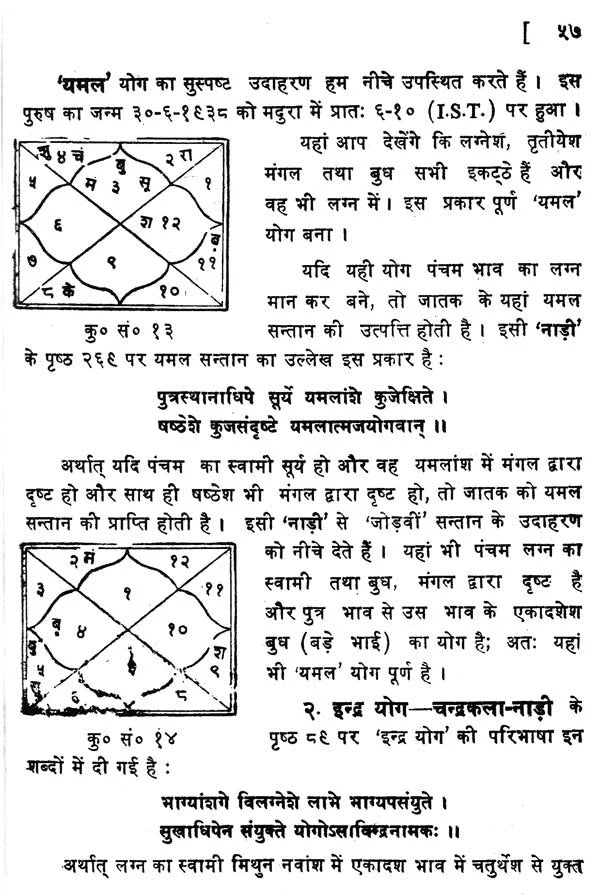 [ ५७
‘यमल’ योग का सुस्पष्ट उदाहरण हम नीचे उपस्थित करते हैं । इस
पुरुष का जन्म ३०-६-१९३८ को मदुरा में प्रातः ६-१० (I.S.T.) पर हुआ ।
शु ४ चं
बु
२ रा
५
मं ३ सू
१
६
श १२
बृ
७
९
११
८ के
१०
कु० सं० १३
यहां आप देखेंगे कि लग्नेश, तृतीयेश
मंगल तथा बुध सभी इकट्ठे हैं और
वह भी लग्न में । इस प्रकार पूर्ण ‘यमल’
योग बना ।
यदि यही योग पंचम भाव का लग्न
मान कर बने, तो जातक के यहां यमल
सन्तान की उत्पत्ति होती है । इसी ‘नाड़ी’
के पृष्ठ २६९ पर यमल सन्तान का उल्लेख इस प्रकार है :
पुत्रस्थानाधिपे सूर्ये यमलांशे कुजेक्षिते ।
षष्ठेशे कुजसंदृष्टे यमलात्मजयोगवान् ।।
अर्थात् यदि पंचम का स्वामी सूर्य हो और वह यमलांश में मंगल द्वारा
दृष्ट हो और साथ ही षष्ठेश भी मंगल द्वारा दृष्ट हो, तो जातक को यमल
सन्तान की प्राप्ति होती है । इसी ‘नाड़ी’ से ‘जोड़वीं’ सन्तान के उदाहरण
२ मं
१२
३
१
११
बृ
४
१०
श
९
८
कु० सं० १४
को नीचे देते हैं । यहां भी पंचम लग्न का
स्वामी तथा बुध, मंगल द्वारा दृष्ट है
और पुत्र भाव से उस भाव के एकादशेश
बुध (बड़े भाई) का योग है; अतः यहां
भी ‘यमल’ योग पूर्ण है ।
२. इन्द्र योग—चन्द्रकला-नाड़ी के
पृष्ठ ८९ पर ‘इन्द्र योग’ की परिभाषा इन
शब्दों में दी गई है :
भाग्यांशगे विलग्नेशे लाभे भाग्यपसंयुते ।
सुखाधिपेन संयुक्ते योगोऽसाविन्द्रनामकः ।।
अर्थात् लग्न का स्वामी मिथुन नवांश में एकादश भाव में चतुर्थेश से युक्त